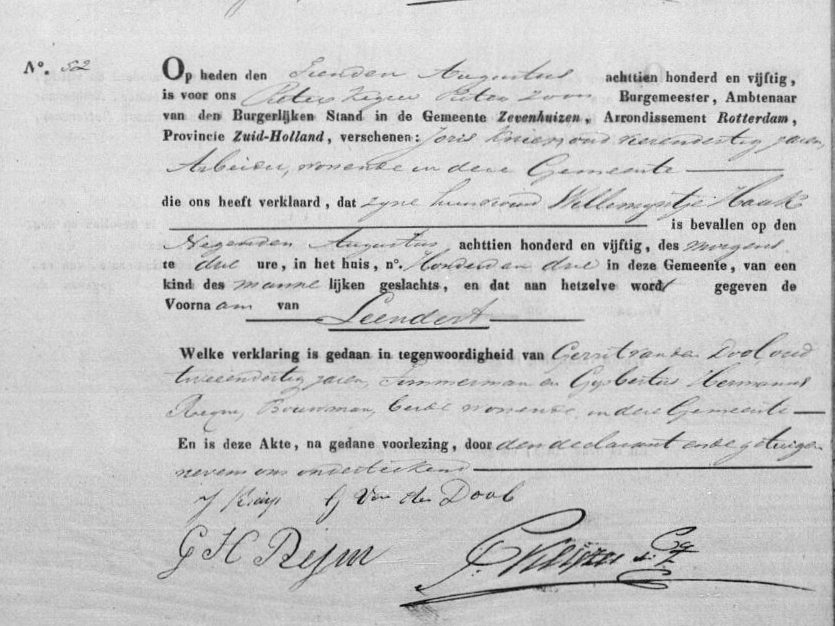 N°. 52
Op heden den Tienden Augustus achttien honderd en vijftig,
is voor ons Pieter Pieter zoon Burgemeester, Ambtenaar
van den Burgerlijken Stand in de Gemeente Zevenhuizen, Arrondissement Rotterdam,
Provincie Zuid-Holland, verschenen: Joris oud vierendertig jaren,
Arbeider, wonende in deze Gemeente
die ons heeft verklaard, dat zyne huisvrouw Willemyntje Hauk
is bevallen op den
Negenden Augustus, achttien honderd en vijftig, des morgens
te drie ure, in het huis, n°. Honderd en drie in deze Gemeente, van een
kind des mannelijken geslachts, en dat aan hetzelve wordt gegeven de
Voornaam van
Leendert
Welke verklaring is gedaan in tegenwoordigheid van Gerrit van den Dool, oud
tweeendertig jaren, Timmerman en Gysbertus Hermanus
Bouwman, beide wonende in deze Gemeente
En is deze Akte, na gedane voorlezing, door den declarant ende getuigen
nevens ons onderteekend
J G Van den Dool
G H